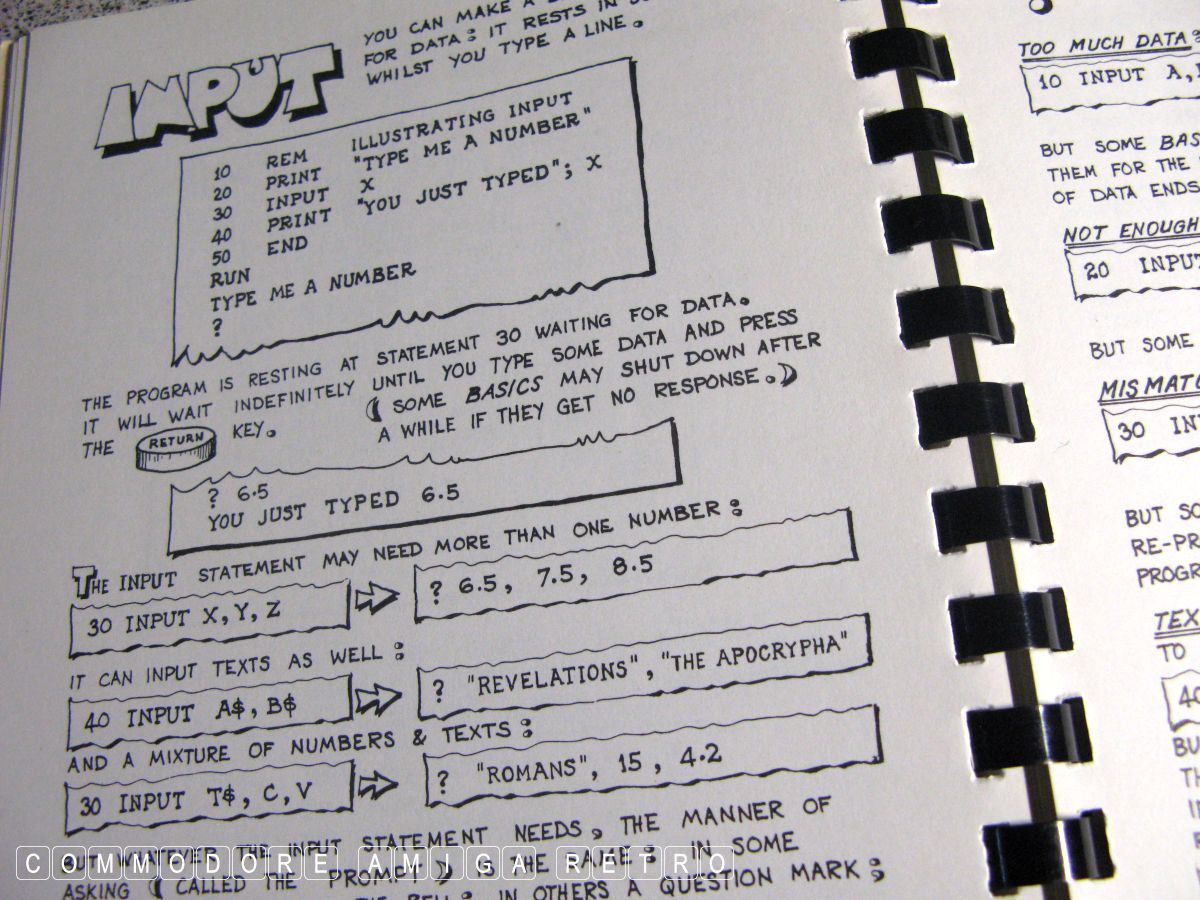 INPUT
YOU CAN MAKE A
FOR DATA: IT RESTS IN
WHILST YOU TYPE A LINE.
10 REM ILLUSTRATING INPUT
20 PRINT "TYPE ME A NUMBER"
30 INPUT X
40 PRINT "YOU JUST TYPED"; X
50 END
RUN
TYPE ME A NUMBER
?
THE PROGRAM IS RESTING AT STATEMENT 30 WAITING FOR DATA.
IT WILL WAIT INDEFINITELY UNTIL YOU TYPE SOME DATA AND PRESS
THE RETURN KEY. (SOME BASICS MAY SHUT DOWN AFTER
A WHILE IF THEY GET NO RESPONSE.)
? 6.5
YOU JUST TYPED 6.5
THE INPUT STATEMENT MAY NEED MORE THAN ONE NUMBER:
30 INPUT X, Y, Z
? 6.5, 7.5, 8.5
IT CAN INPUT TEXTS AS WELL:
40 INPUT A$, B$
? "REVELATIONS", "THE APOCRYPHA"
AND A MIXTURE OF NUMBERS & TEXTS:
30 INPUT T$, C, V
? "ROMANS", 15, 4.2
BUT WHATEVER THE INPUT STATEMENT NEEDS, THE MANNER OF
ASKING (CALLED THE PROMPT) IS THE SAME: IN SOME
THE BELL: IN OTHERS A QUESTION MARK:
COMMODORE AMIGA RETRO
TOO MUCH DATA:
10 INPUT A,
BUT SOME
THEM FOR THE
OF DATA ENDS
NOT ENOUGH
20 INPUT
BUT SOME
30
BUT
40